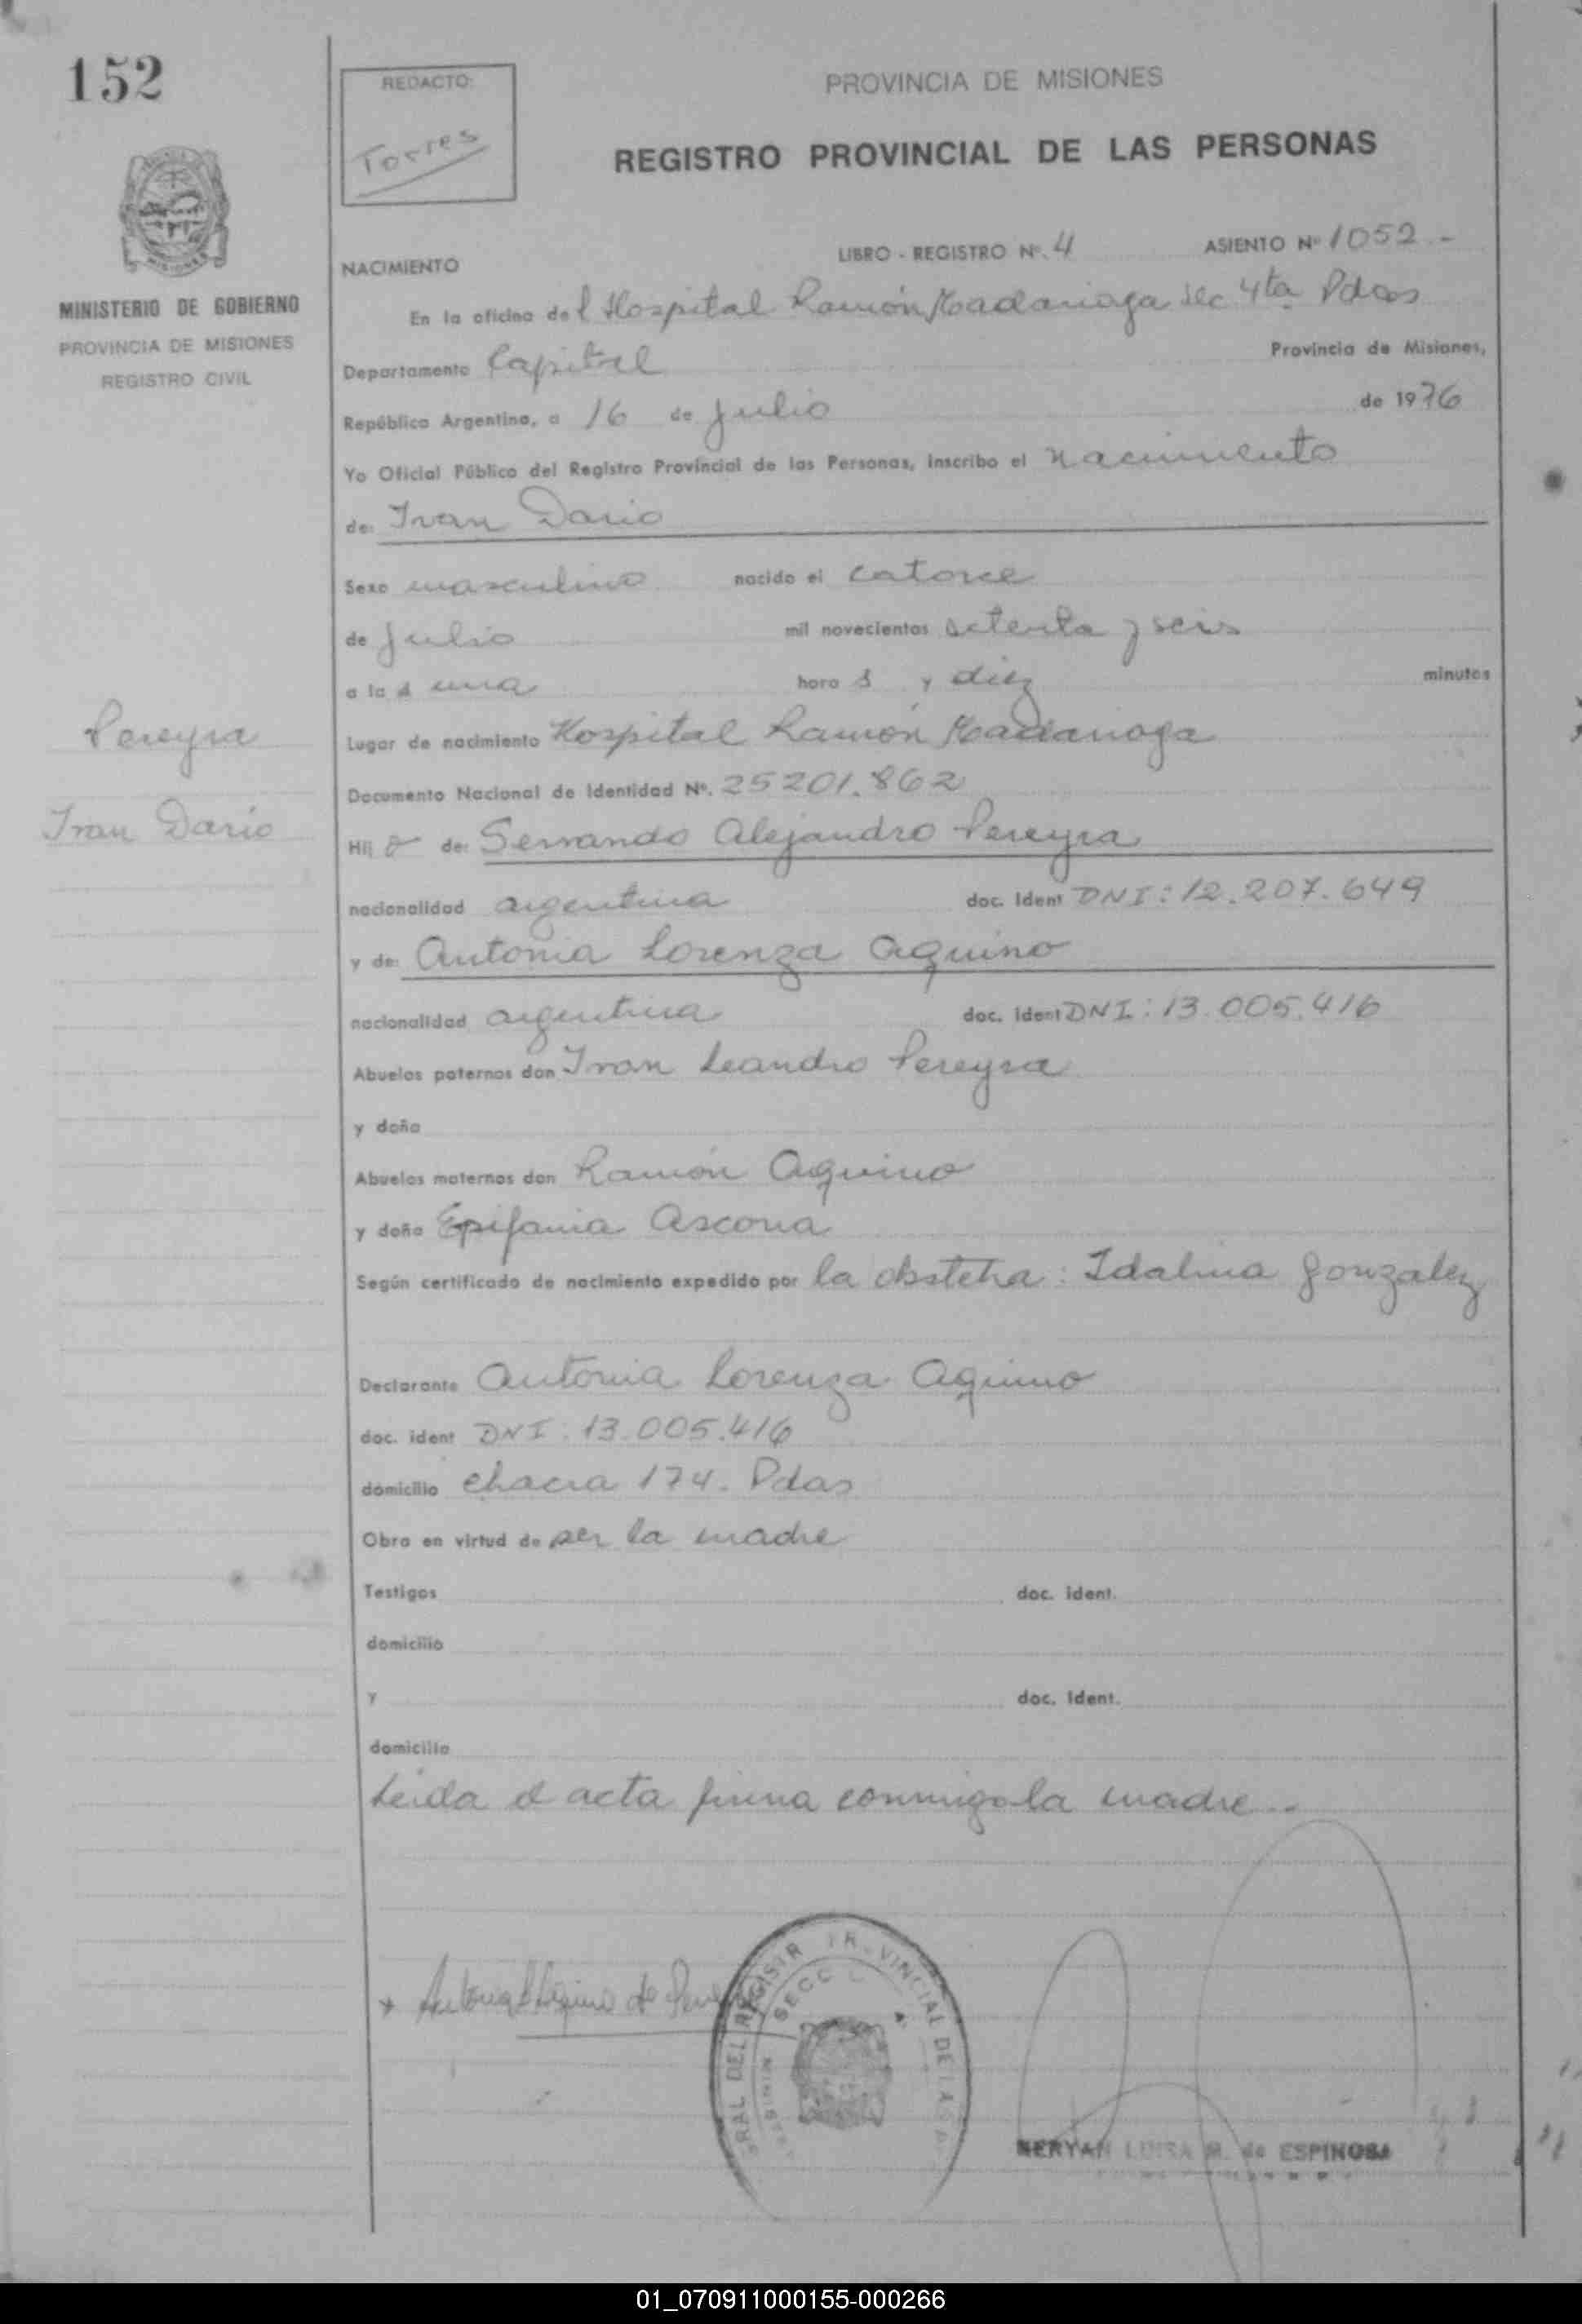 152
REDACTO:
Torres
PROVINCIA DE MISIONES
REGISTRO PROVINCIAL DE LAS PERSONAS
MISIONES
MINISTERIO DE GOBIERNO
PROVINCIA DE MISIONES
REGISTRO CIVIL
NACIMIENTO LIBRO - REGISTRO Nº. 4 ASIENTO Nº 1052 -
En la oficina del Hospital Ramón Madariaga Sec 4ta Pdas
Departamento Capital Provincia de Misiones,
República Argentina, a 16 de Julio de 1976
Yo Oficial Público del Registro Provincial de las Personas, inscribo el nacimiento
de: Ivan Dario
Sexo masculino nacido el catorce
de Julio mil novecientos setenta y seis
a la s una hora s y diez minutos
Lugar de nacimiento Hospital Ramón Madariaga
Pereyra
Ivan Dario
Documento Nacional de Identidad Nº. 25201.862
Hij o de: Servando Alejandro Pereyra
nacionalidad argentina doc. Ident DNI: 12.207.649
y de: Antonia Lorenza Aquino
nacionalidad argentina doc. Ident DNI: 13.005.416
Abuelos paternos don Ivan Leandro Pereyra
y doña
Abuelos maternos don Ramón Aquino
y doña Epifania Ascona
Según certificado de nacimiento expedido por la obstetra: Idalina Gonzalez
Declarante Antonia Lorenza Aquino
doc. ident DNI: 13.005.416
domicilio Chacra 174. Pdas
Obra en virtud de ser la madre
Testigos doc. ident.
domicilio
y doc. Ident.
domicilio
Leida el acta firma conmigo la madre..
Antonia L Aquino de
RAL DEL REGISTR PROVINCIAL DE LAS P
SECC 4
NERYAN LUISA M. de ESPINOSA
01_070911000155-000266